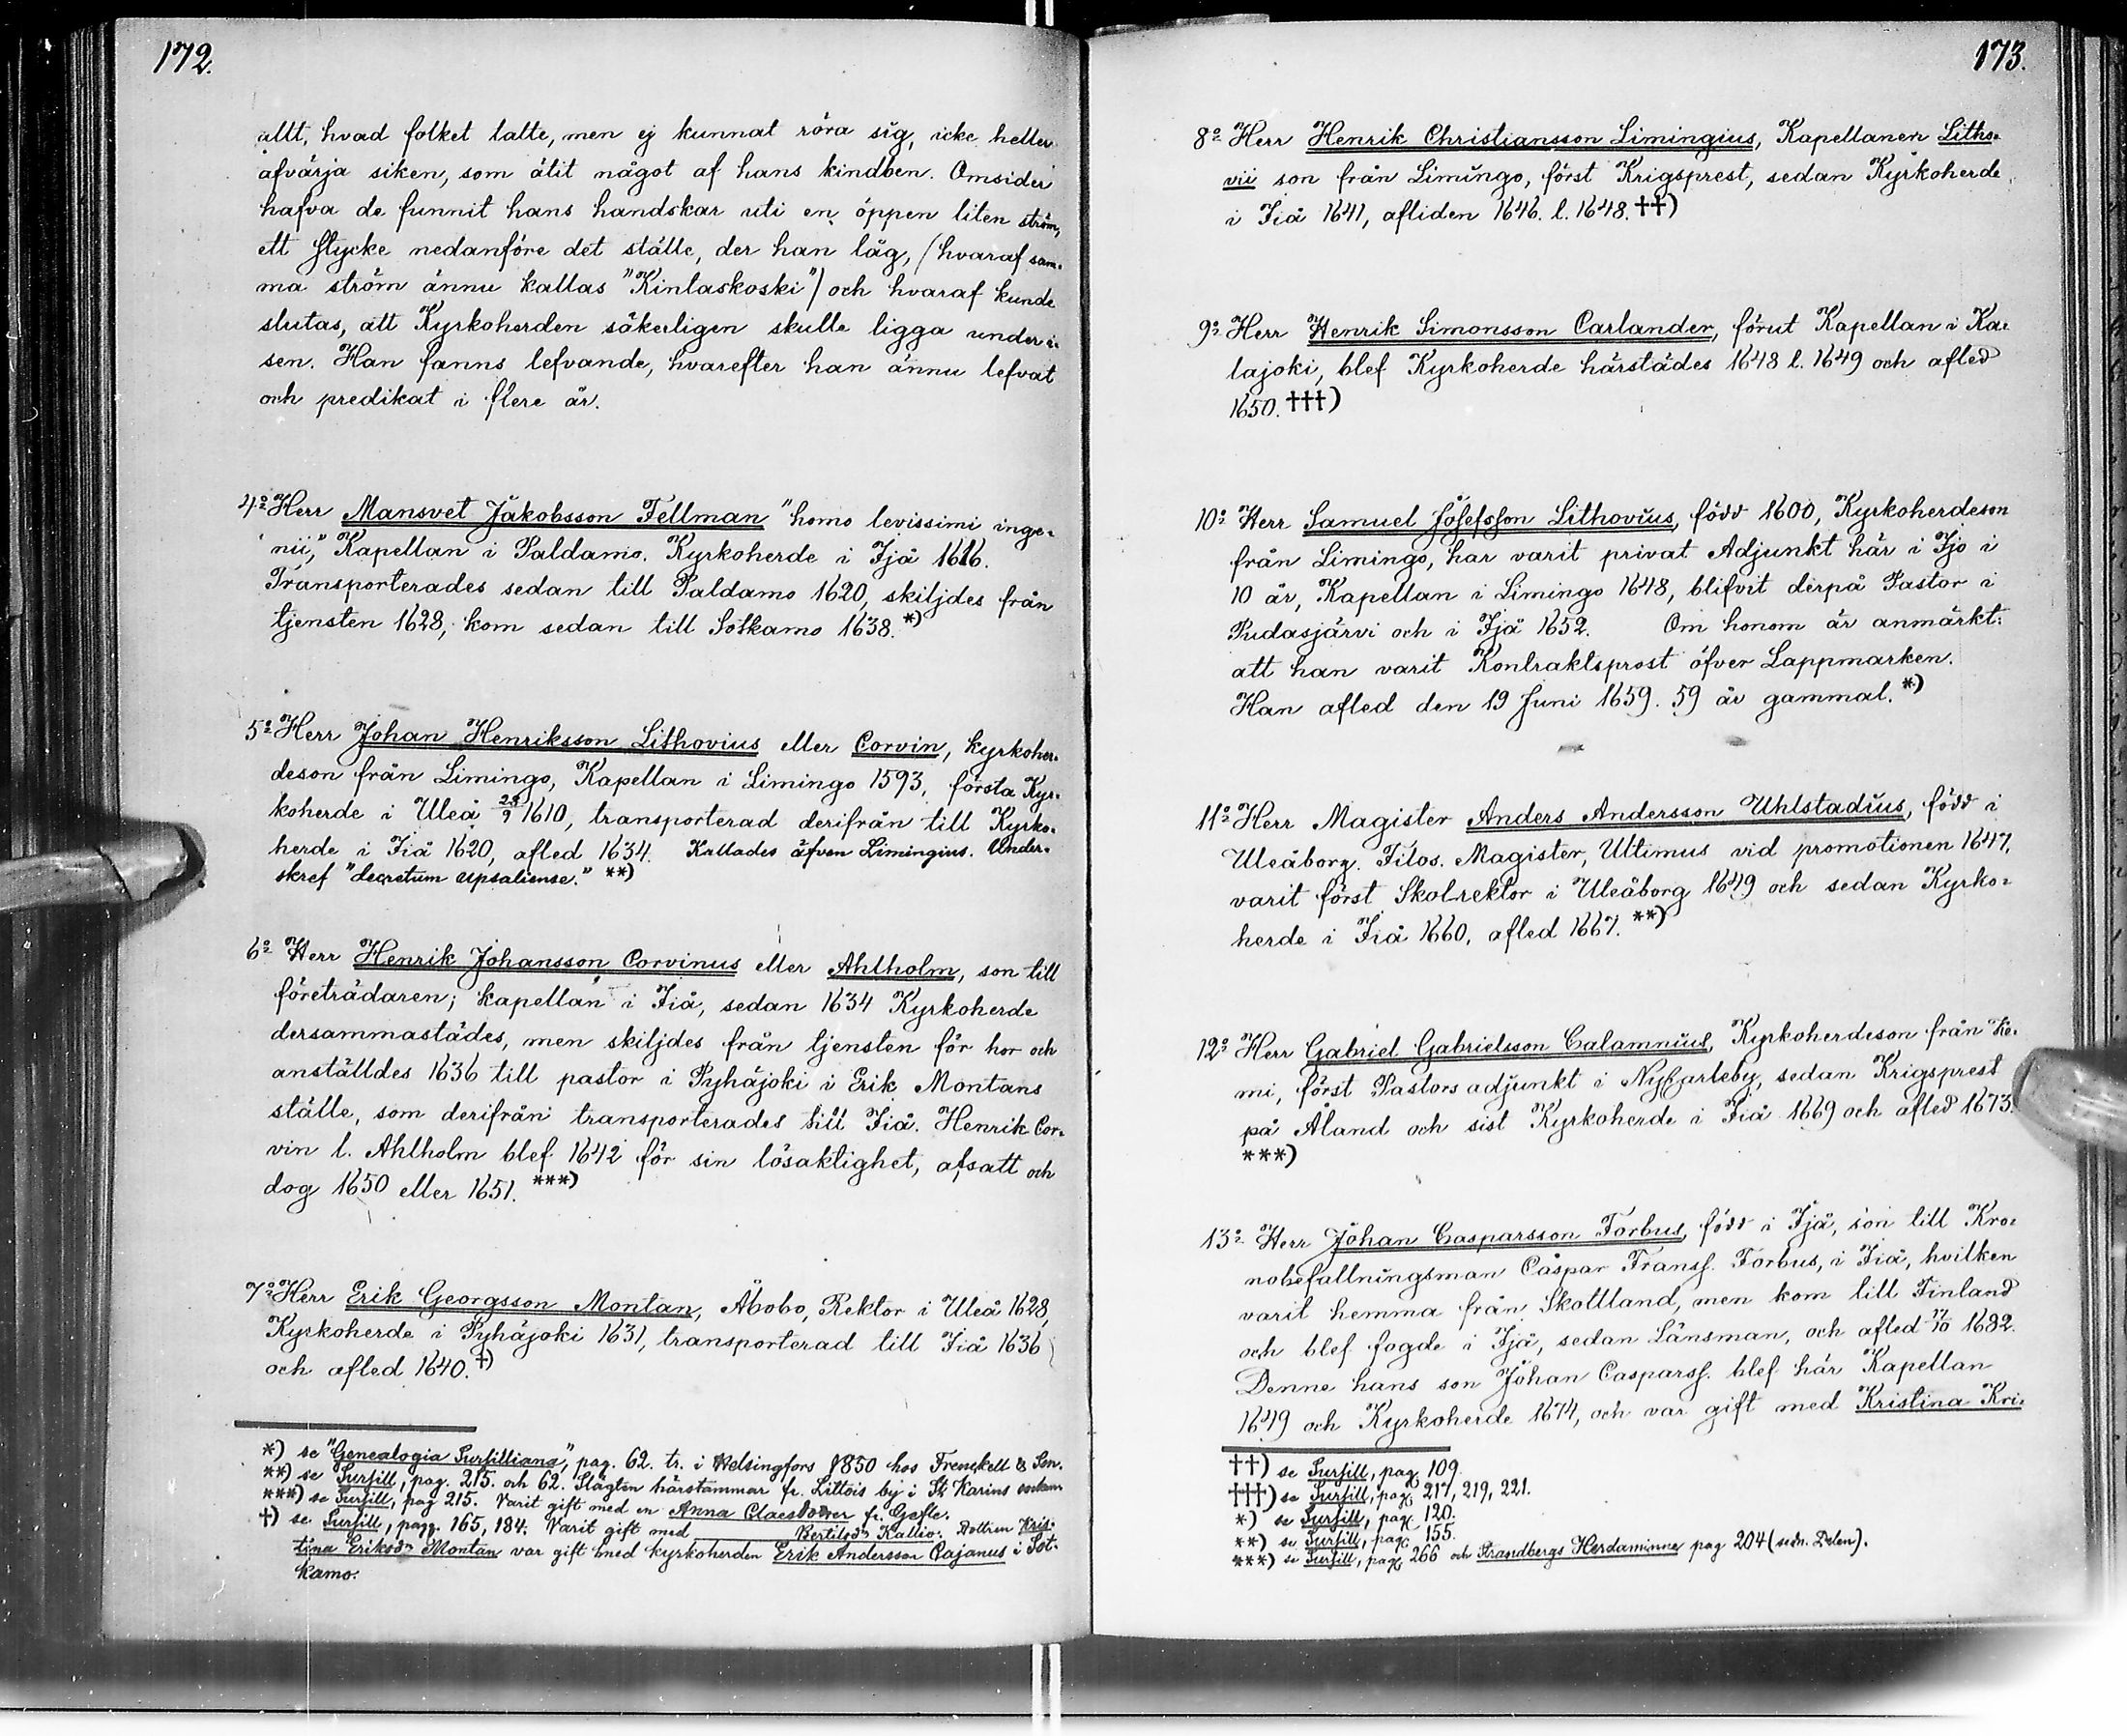 172.
allt, hvad folket talte, men ej kunnat röra sig, icke heller
afvärja siken, som ätit något af hans kindben. Omsider
hafva de funnit hans handskar uti en öppen liten ström,
ett stycke nedanföre det ställe, der han låg, (hvaraf sam-
ma ström ännu kallas "Kinlaskoski") och hvaraf kunde
slutas, att Kyrkoherden säkerligen skulle ligga under i-
sen. Han fanns lefvande, hvarefter han ännu lefvat
och predikat i flere år.
4º Herr Mansvet Jakobsson Fellman "homo levissimi inge-
nii," Kapellan i Paldamo. Kyrkoherde i Ijå 1616.
Transporterades sedan till Paldamo 1620, skiljdes från
tjensten 1628, kom sedan till Sotkamo 1638. *)
5º Herr Johan Henriksson Lithovius eller Corvin, kyrkoher-
deson från Limingo, Kapellan i Limingo 1593, första Kyr-
koherde i Uleå 29/9 1610, transporterad derifrån till Kyrko-
herde i Iiå 1620, afled 1634. Kallades äfven Limingius. Under-
skref "decretum upsaliense." **)
6º Herr Henrik Johansson Corvinus eller Ahlholm, son till
företrädaren; kapellan i Iiå, sedan 1634 Kyrkoherde
dersammastädes, men skiljdes från tjensten för hor och
anställdes 1636 till pastor i Pyhäjoki i Erik Montans
ställe, som derifrån transporterades till Iiå. Henrik Cor-
vin l. Ahlholm blef 1642 för sin lösaktighet, afsatt och
dog 1650 eller 1651. ***)
7º Herr Erik Georgsson Montan, Åbobo, Rektor i Uleå 1628,
Kyrkoherde i Pyhäjoki 1631, transporterad till Iiå 1636
och afled 1640. †)
*) se "Genealogia Sursilliana", pag. 62. tr. i Helsingfors 1850 hos Frenckell & Son.
**) se Sursill, pag. 215. och 62. Slägten härstammar fr. Littois by i St Karins socken
***) se Sursill, pag 215. Varit gift med en Anna Claesdotter fr. Gefle.
†) se Sursill, pagg. 165, 184. Varit gift med Bertilsdr Kallio. Dottren Kris-
tina Eriksdr Montan var gift med kyrkoherden Erik Andersson Cajanus i Sot-
kamo.
173.
8º Herr Henrik Christiansson Limingius, Kapellanen Litho-
vii son från Limingo, först Krigsprest, sedan Kyrkoherde
i Iiå 1641, afliden 1646. l. 1648. ††)
9º Herr Henrik Simonsson Carlander, förut Kapellan i Ka-
lajoki, blef Kyrkoherde härstädes 1648 l. 1649 och afled
1650. †††)
10º Herr Samuel Josefsson Lithovius, född 1600, Kyrkoherdeson
från Limingo, har varit privat Adjunkt här i Ijo i
10 år, Kapellan i Limingo 1648, blifvit derpå Pastor i
Pudasjärvi och i Ijå 1652. Om honom är anmärkt:
att han varit Kontraktsprost öfver Lappmarken.
Han afled den 19 Juni 1659. 59 år gammal. *)
11º Herr Magister Anders Andersson Uhlstadius, född i
Uleåborg. Filos. Magister, Ultimus vid promotionen 1647,
varit först Skolrektor i Uleåborg 1649 och sedan Kyrko-
herde i Iiå 1660, afled 1667. **)
12º Herr Gabriel Gabrielsson Calamnius, Kyrkoherdeson från Ke-
mi, först Pastorsadjunkt i NyCarleby, sedan Krigsprest
på Åland och sist Kyrkoherde i Iiå 1669 och afled 1673.
***)
13º Herr Johan Casparsson Forbus, född i Ijå, son till Kro-
nobefallningsman Caspar Franss. Forbus, i Iiå, hvilken
varit hemma från Skottland, men kom till Finland
och blef fogde i Ijå, sedan Länsman, och afled 17/10 1682.
Denne hans son Johan Casparss. blef här Kapellan
1649 och Kyrkoherde 1674, och var gift med Kristina Kri-
††) se Sursill, pag. 109.
†††) se Sursill, pagg 217, 219, 221.
*) se Sursill, pag. 120.
**) se Sursill, pag. 155.
***) se Sursill, pag. 266 och Strandbergs Herdaminne pag 204 (sedn. Delen).